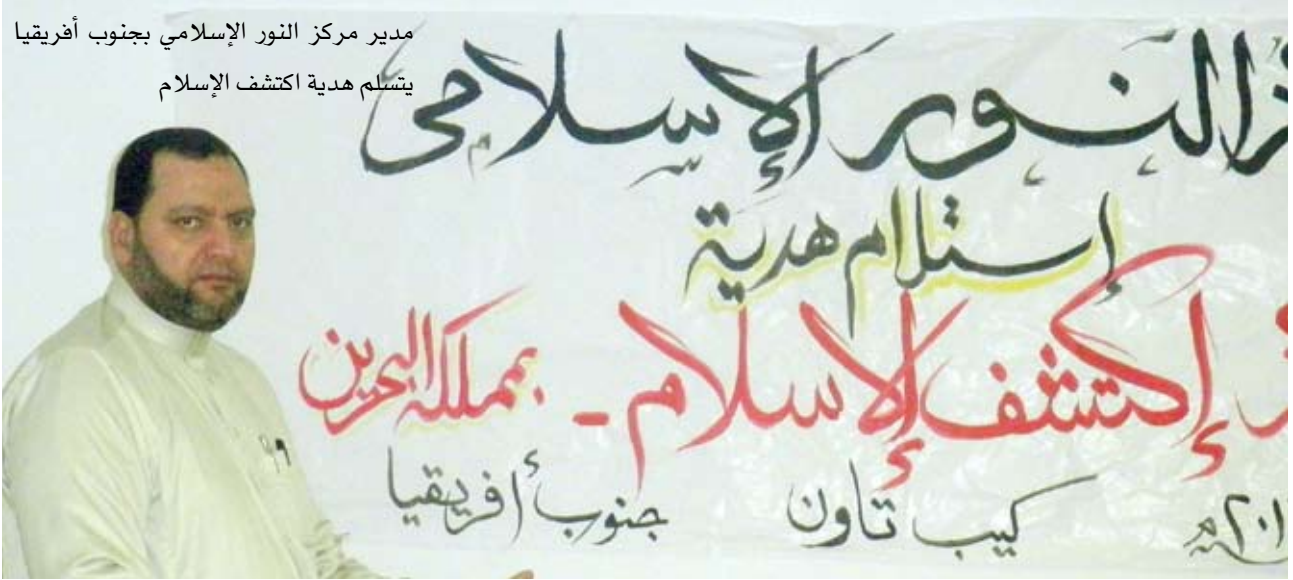 مدير مركز النور الإسلامي بجنوب أفريقيا
يتسلم هدية اكتشف الإسلام
النور الإسلامى
إستلام هدية
إكتشف الإسلام - بمملكة البحرين
كيب تاون جنوب أفريقيا